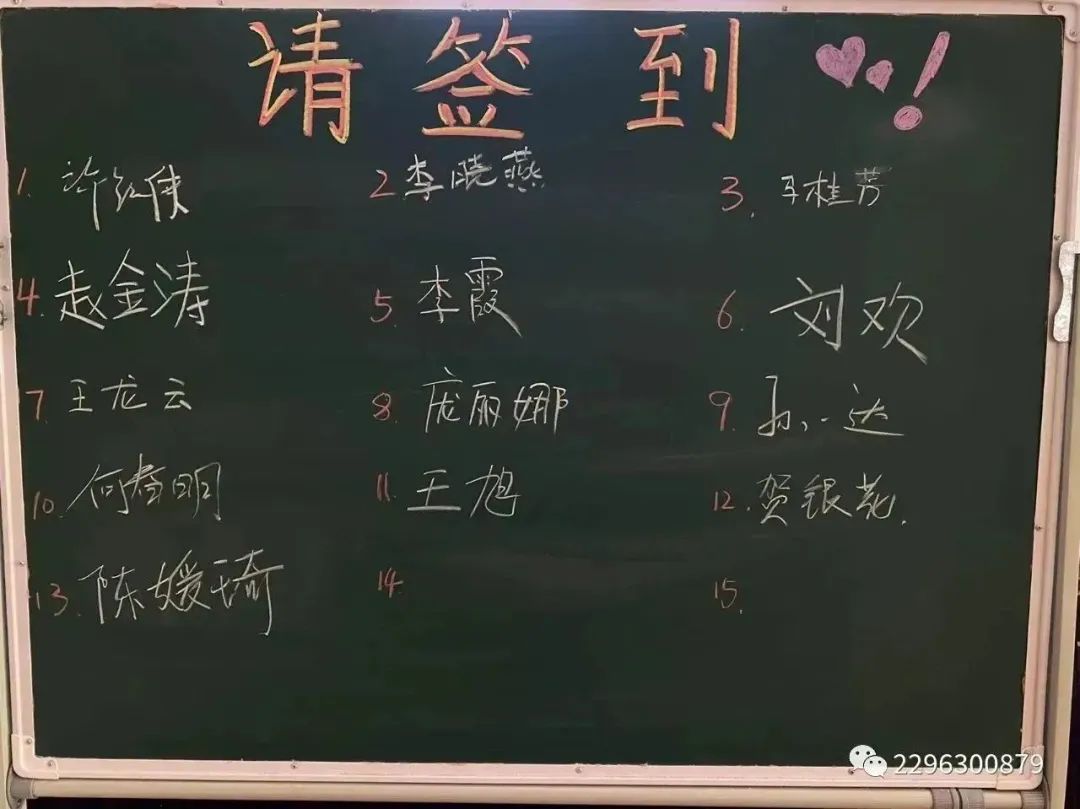 请签到!
1. 许红侠 2. 李晓燕 3. 王桂芳
4. 赵金涛 5. 李霞 6. 刘欢
7. 王龙云 8. 庞丽娜 9. 孙一达
10. 何春明 11. 王旭 12. 贺银花.
13. 陈媛琦 14. 15.
2296300879